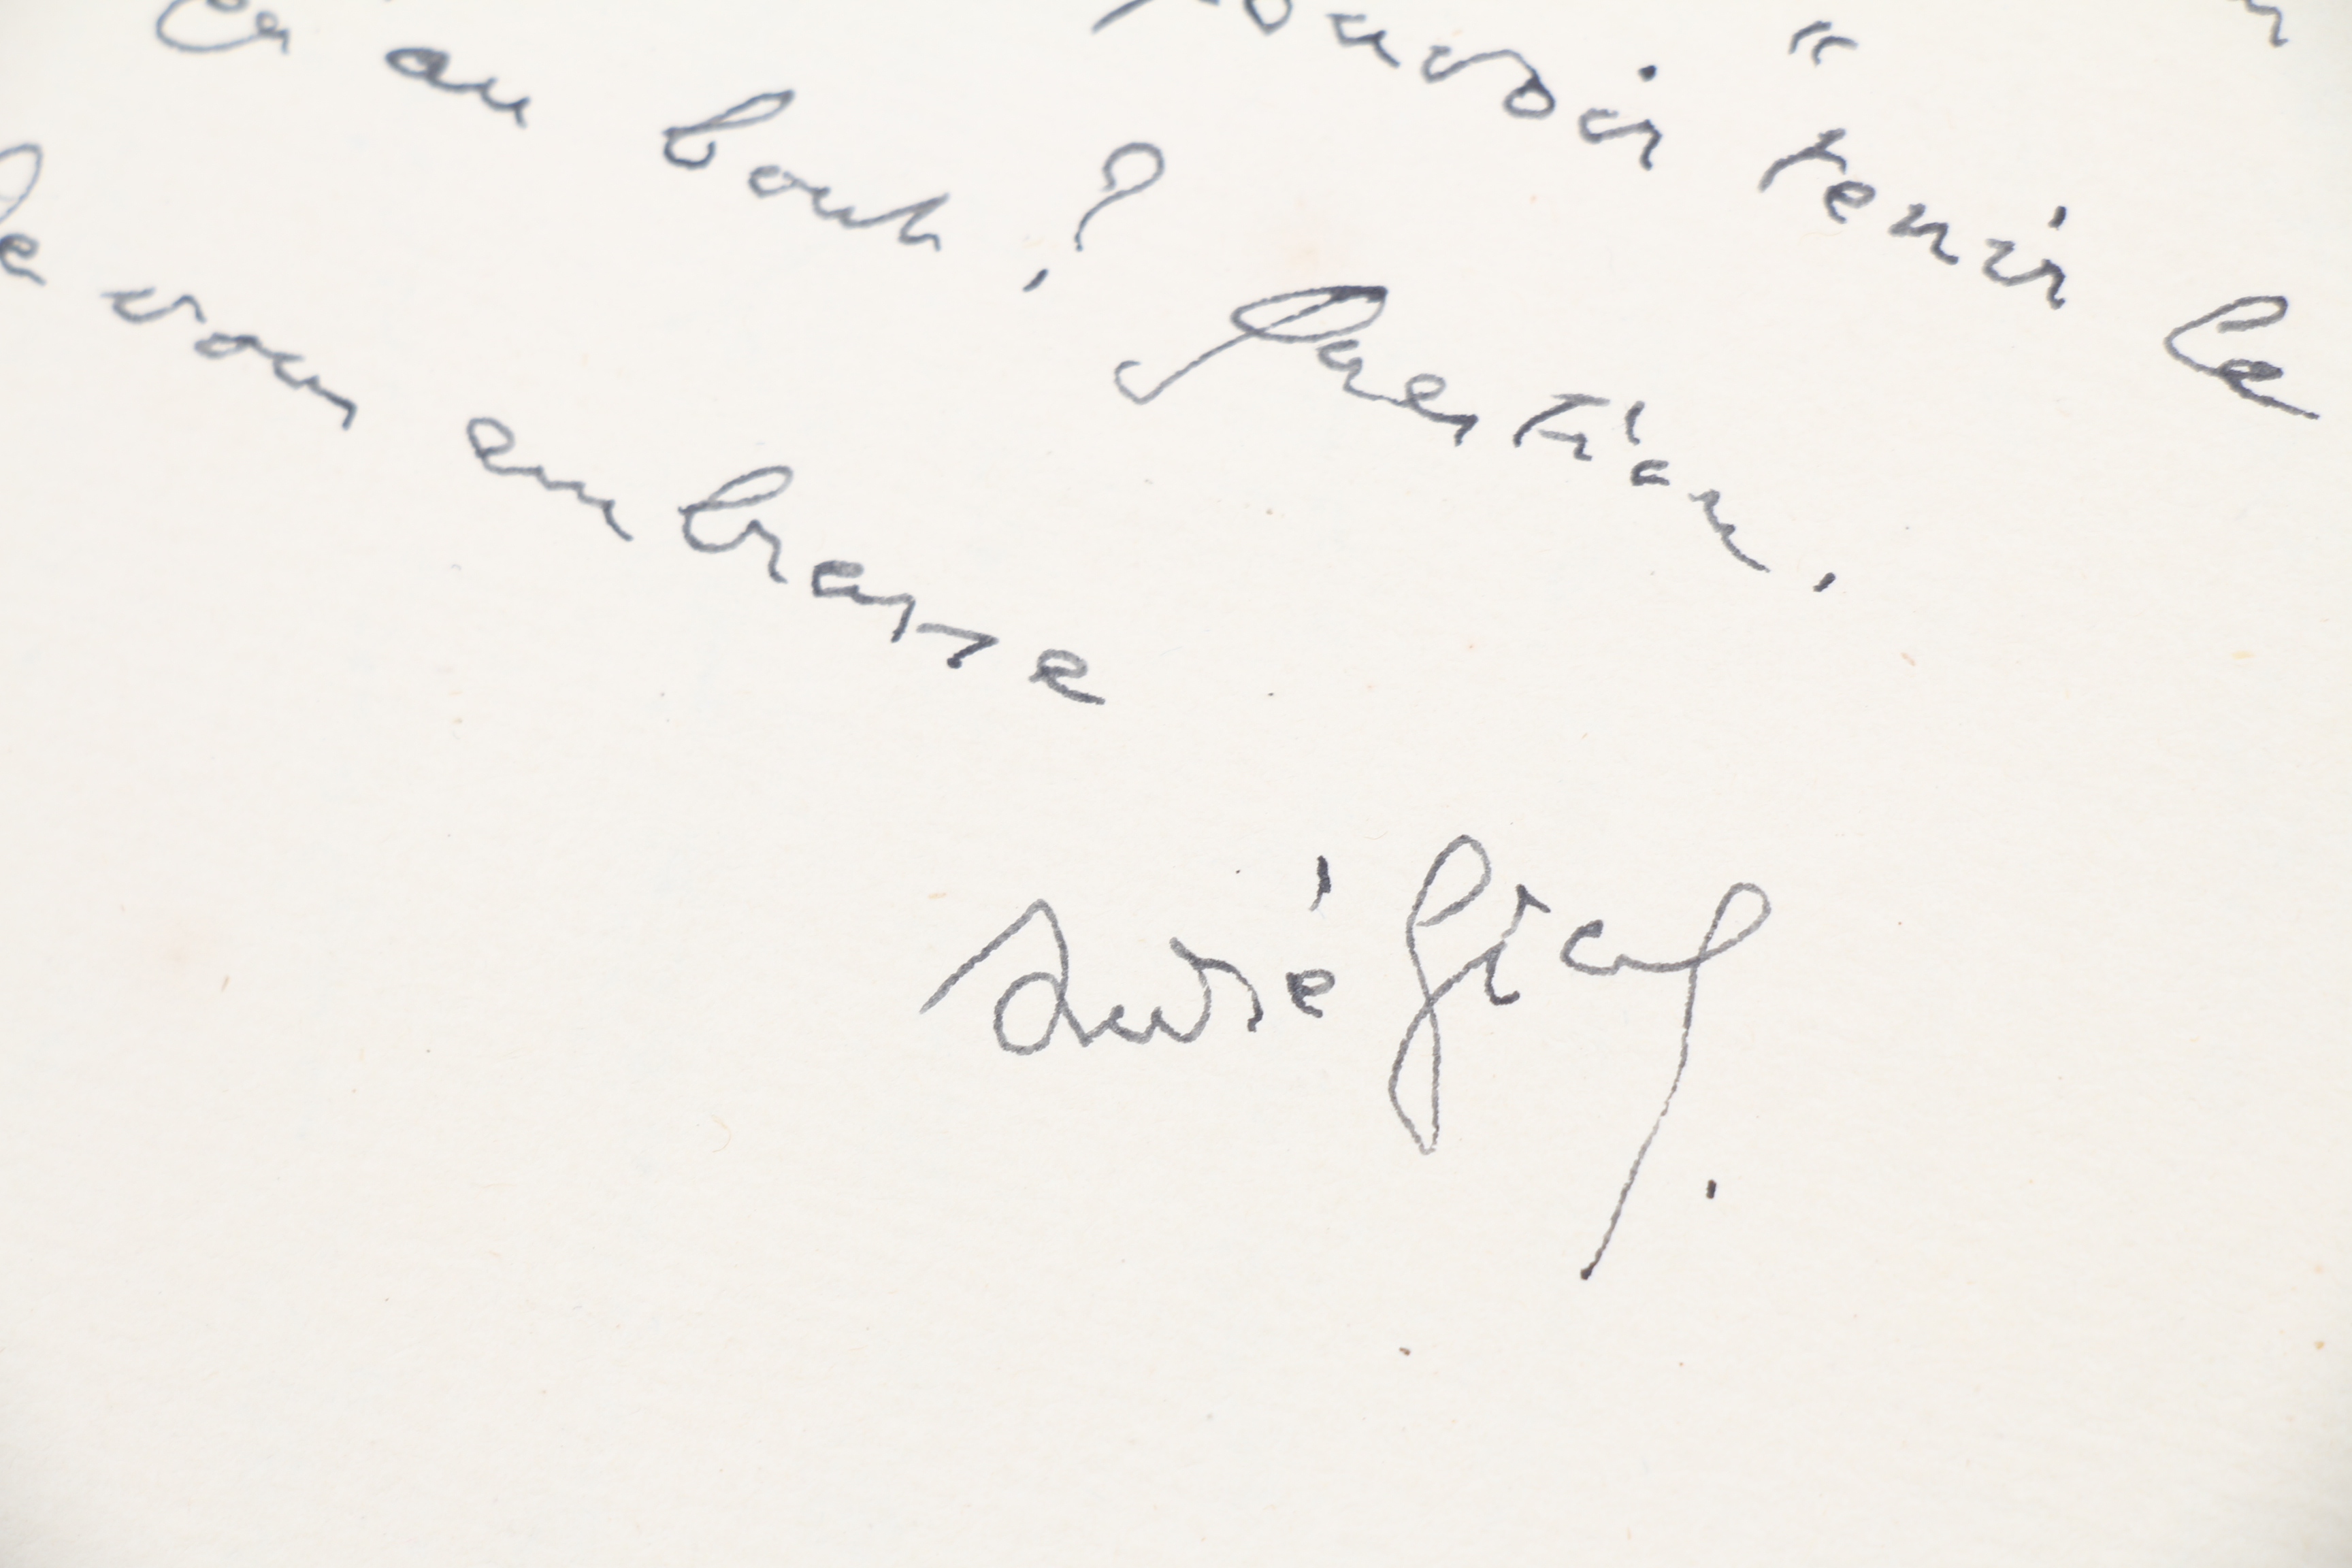 pouvoir " tenir le
au bout ? Question.
Je vous embrasse
André